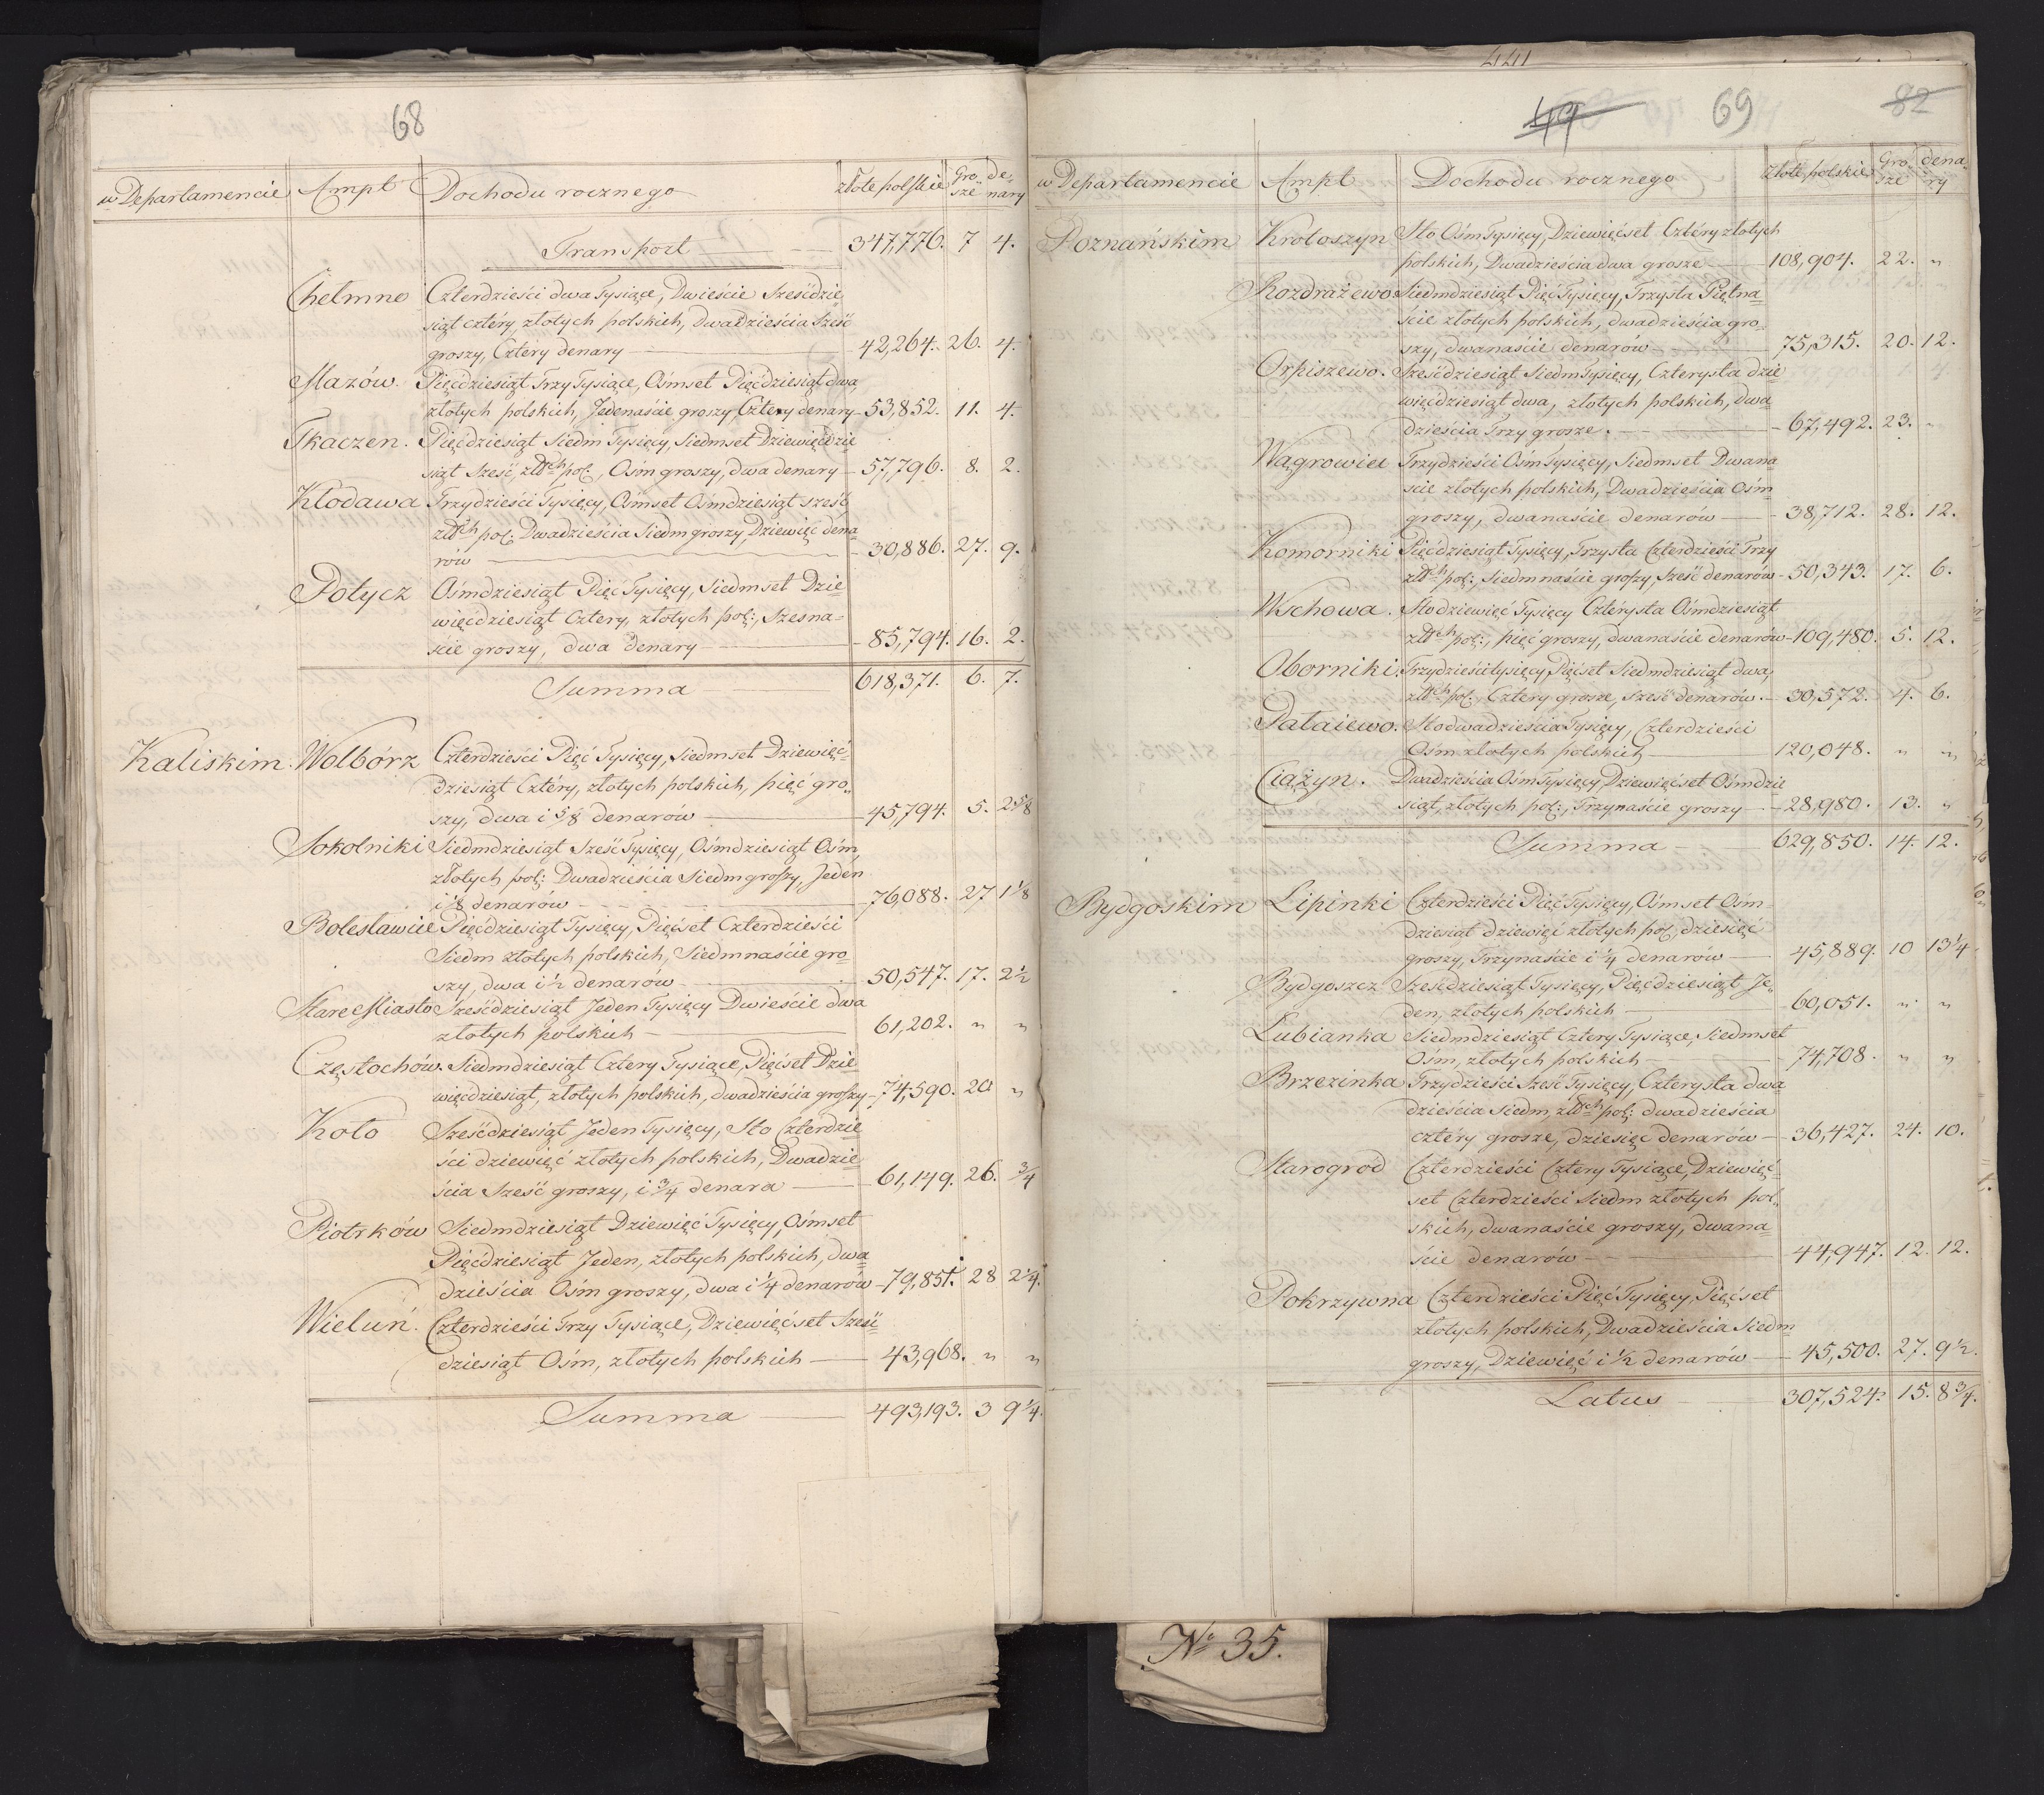 68
w Departamencie Ampt Dochodu rocznego złote polskie Gro-sze de-nary
Transport 347,776. 7 4.
Chełmno Czterdzieści dwa Tysiące, Dwieście Sześćdzie
siąt cztéry, złotych polskich, dwadzieścia sześć
groszy, Cztery denary 42,264. 26. 4.
Mazów. Pięćdziesiąt Trzy Tysiące, Ośmset Pięćdziesiąt dwa
złotych polskich, Jedenaście groszy Cztery denary 53,852. 11. 4.
Tkaczen. Pięćdziesiąt Siedm Tysięcy, Siedmset Dziewięćdzie
siąt Sześć, złłtych pol:, Ośm groszy, dwa denary 57,796. 8. 2.
Kłodawa Trzydzieści Tysięcy, Ośmset Ośmdziesiąt sześć
złłtych pol. Dwadzieścia Siedm groszy, Dziewięć dena
rów 30,886. 27. 9.
Potycz Ośmdziesiąt Pięć Tysięcy, Siedmset Dzie
więćdziesiąt Cztery, złotych pol:, Szesna-
ście groszy, dwa denary 85,794. 16. 2.
Summa 618,371. 6. 7.
Kaliskim. Wolbórz Czterdzieści Pięć Tysięcy, Siedmset Dziewięć-
dziesiąt Cztéry, złotych polskich, pięć gro-
szy, dwa i 5/8 denarów 45,794. 5. 2 5/8
Sokolniki Siedmdziesiąt Sześć Tysięcy, Ośmdziesiąt Ośm,
złotych pol: Dwadzieścia Siedm groszy, Jeden
i 1/8 denarów 76,088. 27 1 1/8
Bolesławiec Pięćdziesiąt Tysięcy, Pięćset Czterdzieści
Siedm złotych polskich, Siedmnaście gro-
szy, dwa i 1/2 denarów 50,547. 17. 2 1/2
Stare Miasto Sześćdziesiąt Jeden Tysięcy Dwieście dwa
złotych polskich 61,202. „ „
Częstochów. Siedmdziesiąt Cztery Tysiące, Pięćset Dzie-
więćdziesiąt, złotych polskich, dwadzieścia groszy 74,590. 20 „
Koło Sześćdziesiąt Jeden Tysięcy, Sto Czterdzie
ści dziewięć złotych polskich, Dwadzie-
ścia Sześć groszy, i 3/4 denara 61,149. 26. 3/4
Piotrków Siedmdziesiąt Dziewięć Tysięcy, Ośmset
Pięćdziesiąt Jeden, złotych polskich, dwa
dzieścia Ośm groszy, dwa i 1/4 denarów 79,851. 28 2 1/4.
Wieluń. Czterdzieści Trzy Tysiące, Dziewięćset Sześć-
dziesiąt Ośm, złotych polskich 43,968. „ „
Summa 493,193. 3 9 1/4.
441
49 69 82
w Departamencie Ampt Dochodu rocznego złote polskie Gro-sze dena-ry
Poznańskim Krotoszyn Sto Ośm Tysięcy, Dziewięćset Cztéry złotych
polskich, Dwadzieścia dwa grosze 108,904. 22. „
Rozdrażewo Siedmdziesiąt Pięć Tysięcy, Trzysta Piętna-
ście złotych polskich, dwadzieścia gro-
szy, dwanaście denarów 75,315. 20. 12.
Orpiszewo. Sześćdziesiąt Siedm Tysięcy, Czterysta dzie
więćdziesiąt dwa, złotych polskich, dwa-
dzieścia Trzy grosze. 67,492. 23. „
Wągrowiec Trzydzieści Ośm Tysięcy, Siedmset Dwana
ście złotych polskich, Dwadzieścia Ośm
groszy, dwanaście denarów 38,712. 28. 12.
Komorniki Pięćdziesiąt Tysięcy, Trzysta Czterdzieści Trzy
złłtych pol:, Siedmnaście groszy, sześć denarów 50,343. 17. 6.
Wschowa. Sto dziewięć Tysięcy Cztérysta Ośmdziesiąt
złłtych pol:, pięć groszy, dwanaście denarów 109,480. 5. 12.
Oborniki. Trzydzieści tysięcy Pięćset Siedmdziesiąt dwa,
złłtych pol., Cztery grosze, sześć denarów. 30,572. 4. 6.
Pataiewo. Sto dwadzieścia Tysięcy, Czterdzieści
Ośm złotych polskich 120,048. „ „
Ciążyn. Dwadzieścia Ośm Tysięcy Dziewięćset Ośmdzie
siąt, złotych pol:, Trzynaście groszy 28,980. 13. „
Summa 629,850. 14. 12.
Bydgoskim Lipinki Czterdzieści Pięć Tysięcy, Ośmset Ośm-
dziesiąt dziewięć złotych pol., dziesięć
groszy, Trzynaście i 1/4 denarów 45,889. 10 13 1/4
Bydgoszcz Sześćdziesiąt Tysięcy, Pięćdziesiąt Je-
den, złotych polskich 60,051. „ „
Lubianka Siedmdziesiąt Cztery Tysiące, Siedmset
Ośm, złotych polskich 74,708. „ „
Brzezinka Trzydzieści Sześć Tysięcy, Czterysta dwa
dzieścia siedm, złłtych pol: dwadzieścia
cztéry grosze, dziesięć denarów 36,427. 24. 10.
Starogrod Czterdzieści Cztery Tysiące, Dziewięć-
set Czterdzieści Siedm złotych pol-
skich, dwanaście groszy, dwana
ście denarów 44,947. 12. 12.
Pokrzywna Czterdzieści Pięć Tysięcy, Pięćset
złotych polskich, Dwadzieścia Siedm
groszy, Dziewięć i 1/2 denarów 45,500. 27. 9 1/2.
Latus 307,524. 15. 8 3/4.
No 35.